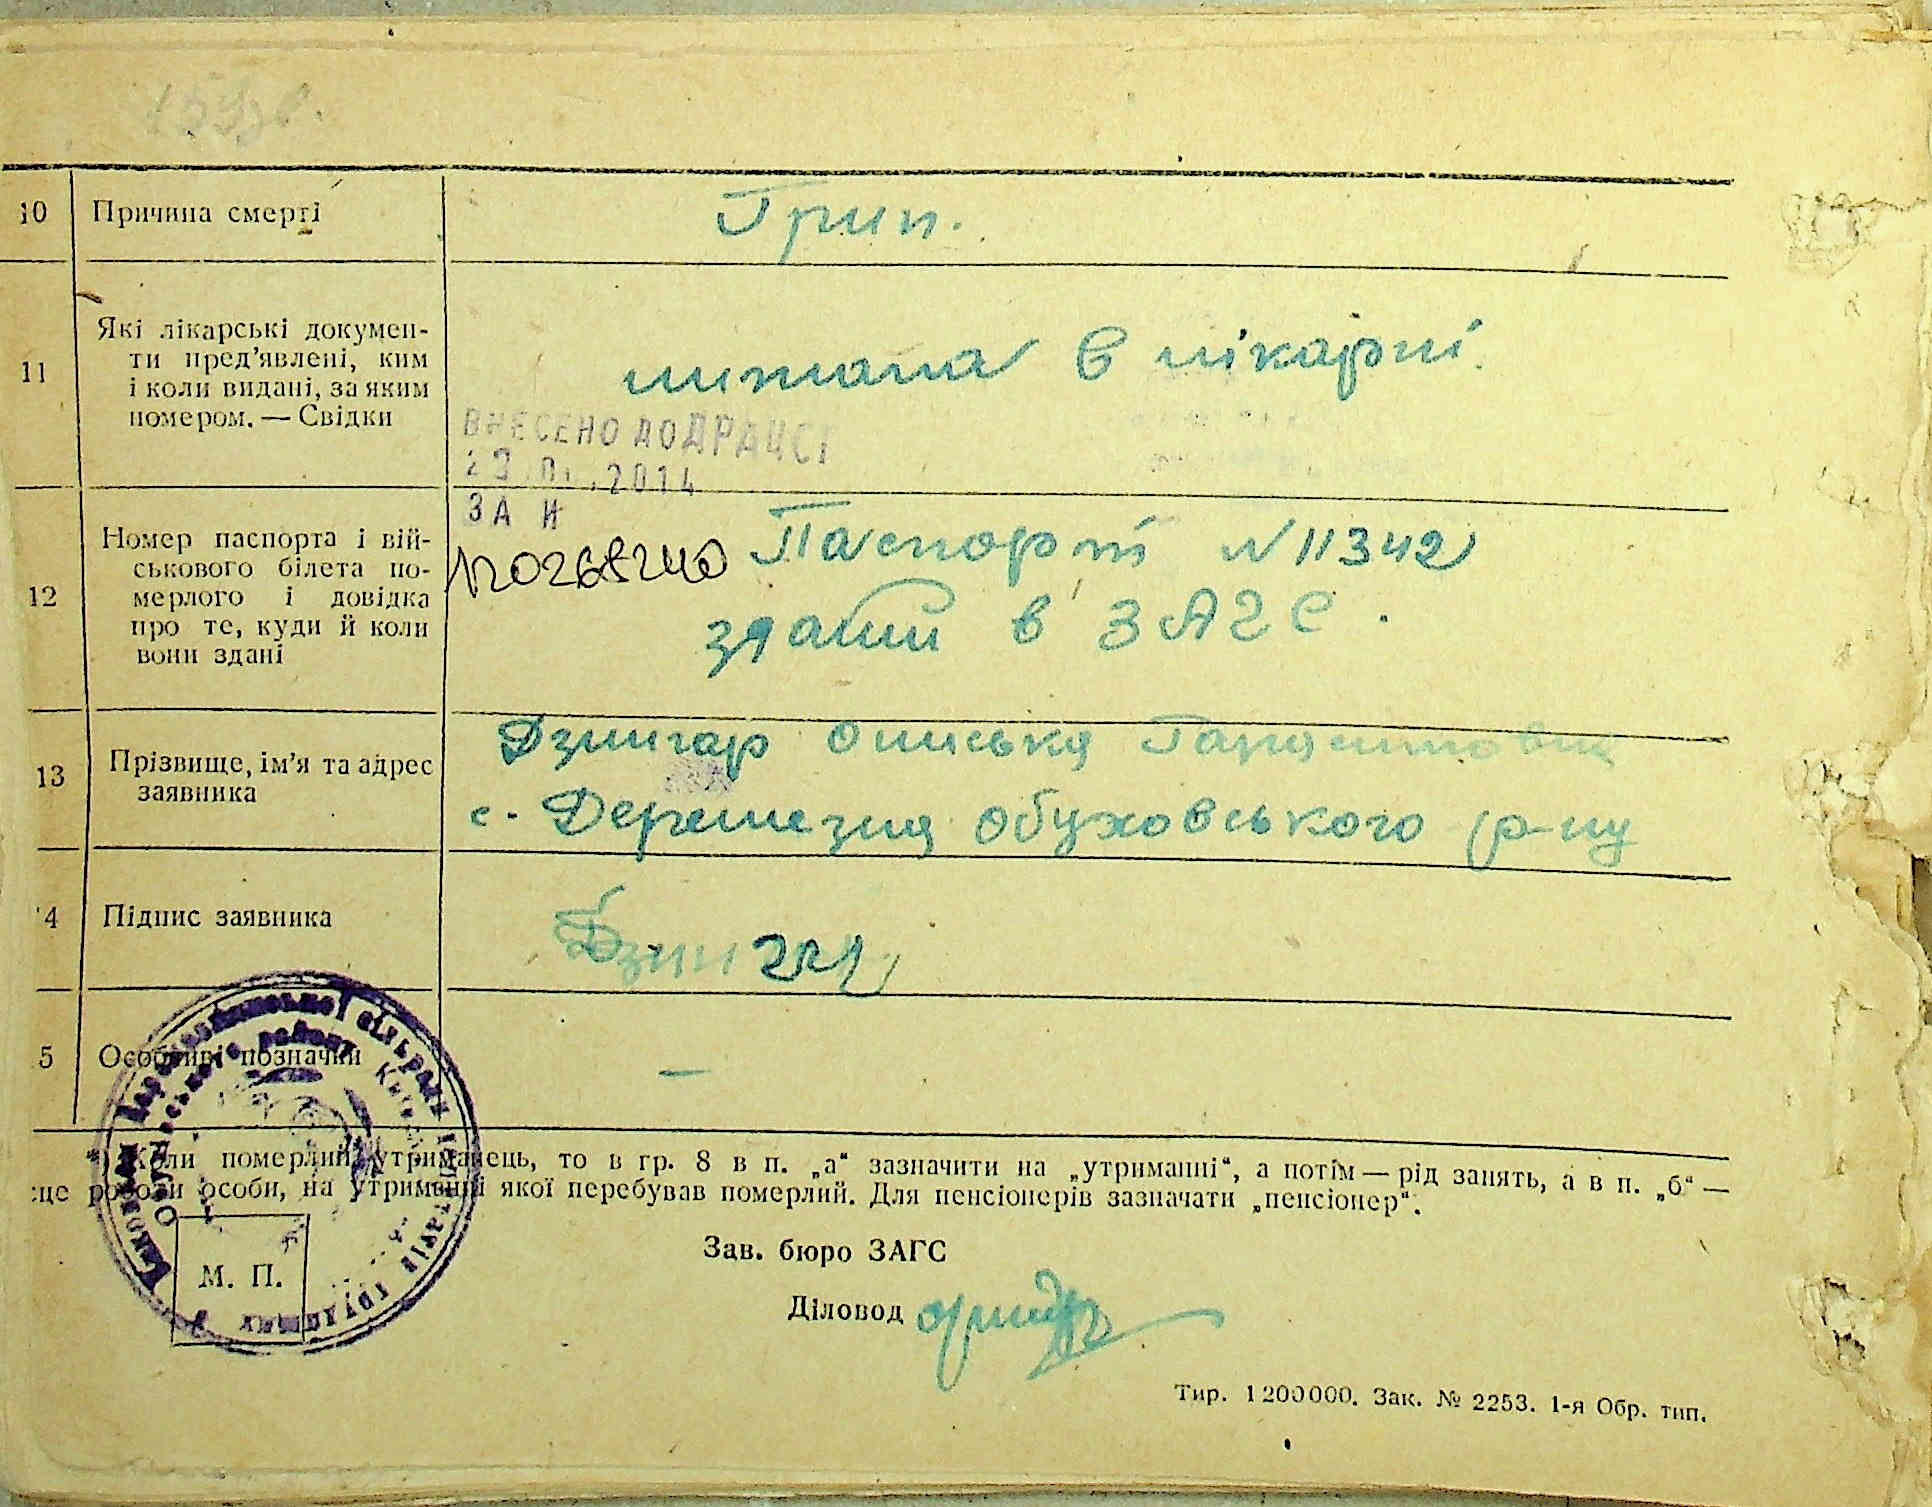 10 Причина смерті Грип.
11 Які лікарські докумен-
ти пред'явлені, ким
і коли видані, за яким
номером. — Свідки
лижала в лікарні.
ВНЕСЕНО ДО ДРАЦСГ
2014
ЗА №
12 Номер паспорта і вій-
ськового білета по-
мерлого і довідка
про те, куди й коли
вони здані
Паспорт N 11342
здатий в ЗАГС.
13 Прізвище, ім'я та адрес
заявника
Дзингар Ониська
с. Деремезна Обуховського р-ну
4 Підпис заявника
5 Особливі позначки —
*) Коли померлий утриманець, то в гр. 8 в п. „а“ зазначити на „утриманні“, а потім — рід занять, а в п. „б“ —
це роботи особи, на утриманні якої перебував померлий. Для пенсіонерів зазначати „пенсіонер“.
Зав. бюро ЗАГС
М. П.
Діловод
Тир. 1200000. Зак. № 2253. 1-я Обр. тип.